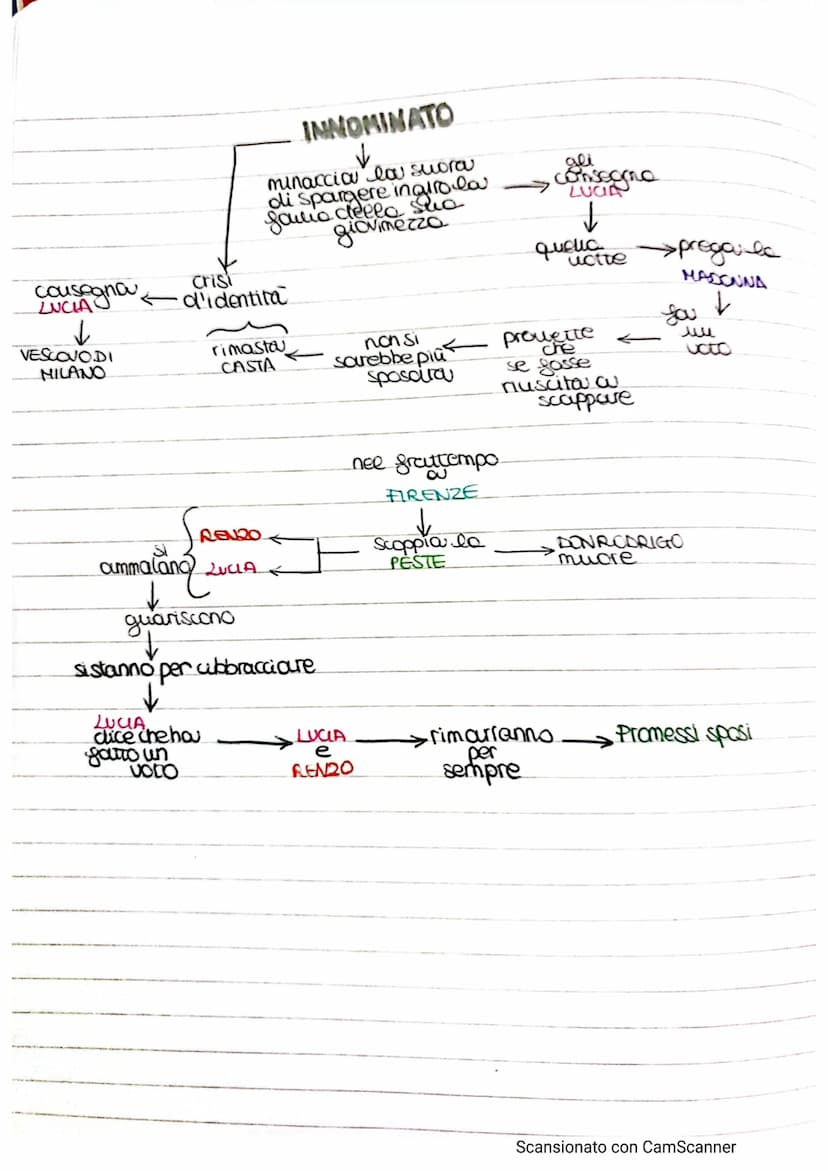 INNOMINATO
minaccia la suora
di spargere in giro la
fama della sua
giovinezza
gli
consegna
LUCIA
quella
notte
prega la
MADONNA
fa
un
voto
promette
che
se fosse
riuscita a
scappare
non si
sarebbe più
sposata
rimasta
CASTA
crisi
d'identità
consegna
LUCIA
VESCOVO DI
MILANO
nel frattempo
a
FIRENZE
scoppia la
PESTE
DON RODRIGO
muore
RENZO
LUCIA
si
ammalano
guariscono
si stanno per abbracciare
LUCIA
dice che ha
fatto un
voto
LUCIA
e
RENZO
rimarranno
per
sempre
Promessi sposi
Scansionato con CamScanner